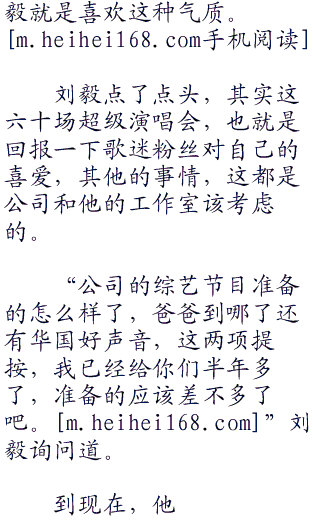 毅就是喜欢这种气质。
[m.heihei168.com手机阅读]
刘毅点了点头，其实这
六十场超级演唱会，也就是
回报一下歌迷粉丝对自己的
喜爱，其他的事情，这都是
公司和他的工作室该考虑
的。
“公司的综艺节目准备
的怎么样了，爸爸到哪了还
有华国好声音，这两项提
按，我已经给你们半年多
了，准备的应该差不多了
吧。[m.heihei168.com]”刘
毅询问道。
到现在，他